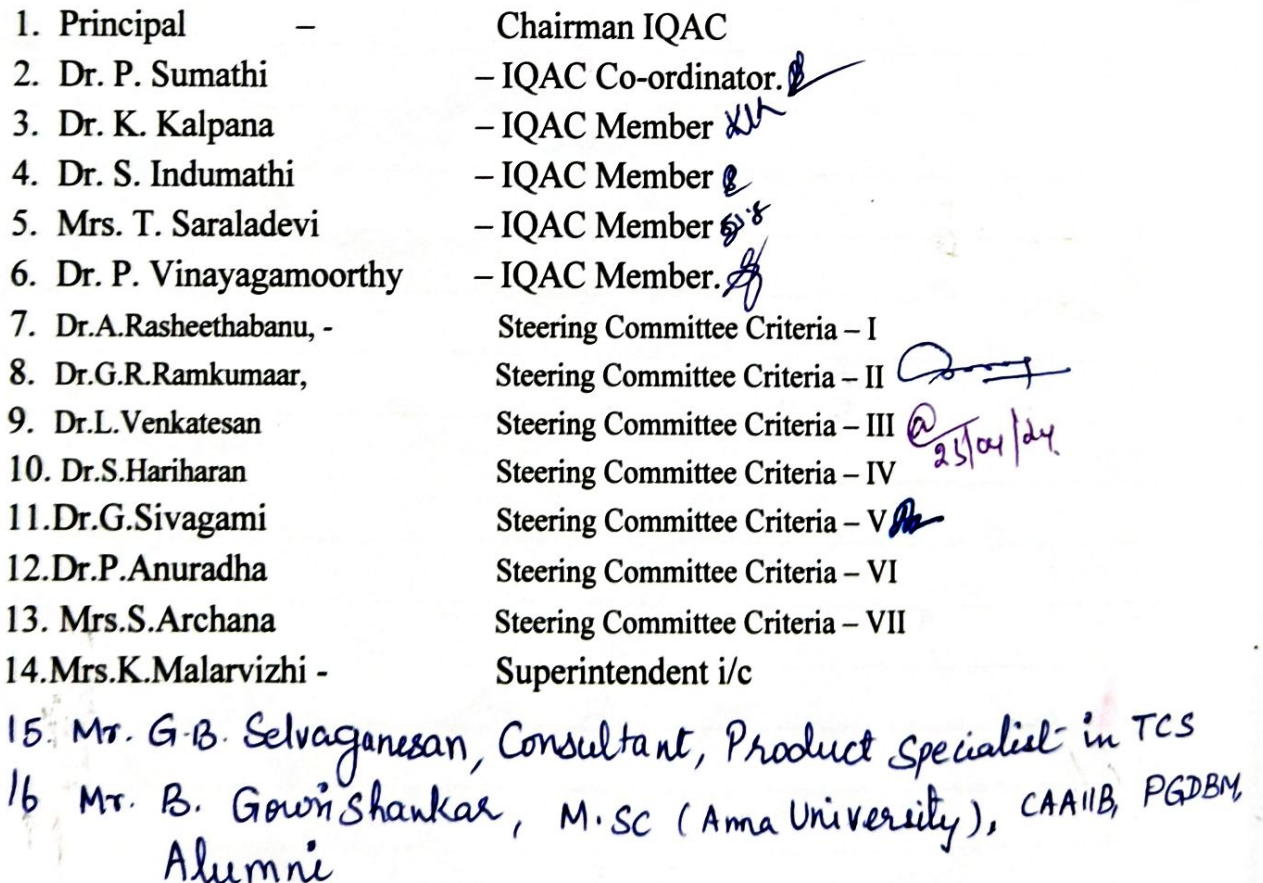 1. Principal – Chairman IQAC
2. Dr. P. Sumathi – IQAC Co-ordinator.
3. Dr. K. Kalpana – IQAC Member
4. Dr. S. Indumathi – IQAC Member
5. Mrs. T. Saraladevi – IQAC Member
6. Dr. P. Vinayagamoorthy – IQAC Member.
7. Dr.A.Rasheethabanu, - Steering Committee Criteria – I
8. Dr.G.R.Ramkumaar, Steering Committee Criteria – II
9. Dr.L.Venkatesan Steering Committee Criteria – III
25/04/24
10. Dr.S.Hariharan Steering Committee Criteria – IV
11.Dr.G.Sivagami Steering Committee Criteria – V
12.Dr.P.Anuradha Steering Committee Criteria – VI
13. Mrs.S.Archana Steering Committee Criteria – VII
14.Mrs.K.Malarvizhi - Superintendent i/c
15. Mr. G.B. Selvaganesan, Consultant, Product Specialist in TCS
16 Mr. B. Gowrishankar, M.SC (Anna University), CAAIIB, PGDBM,
Alumni